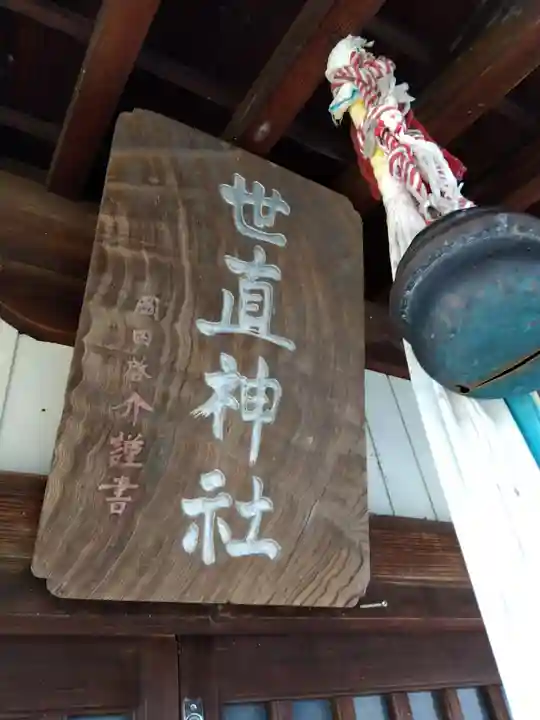 世直神社
岡田啓介謹書